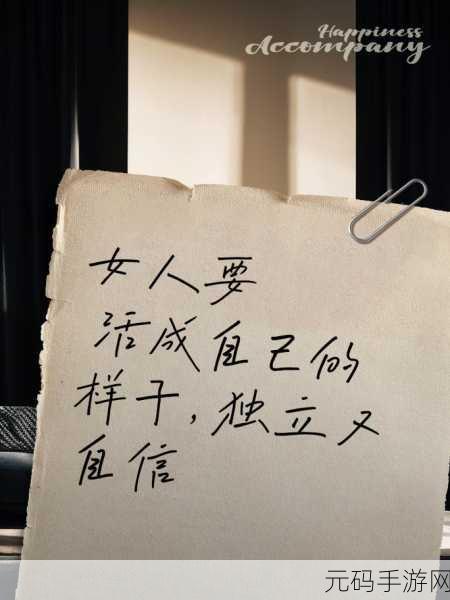 Happiness
Accompany
女人要
活成自己的
样子,独立又
自信
元码手游网